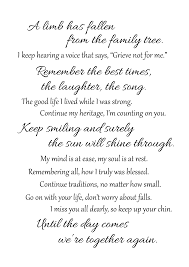 A limb has fallen
from the family tree.
I keep hearing a voice that says, "Grieve not for me."
Remember the best times,
the laughter, the song.
The good life I lived while I was strong.
Continue my heritage, I'm counting on you.
Keep smiling and surely
the sun will shine through.
My mind is at ease, my soul is at rest.
Remembering all, how I truly was blessed.
Continue traditions, no matter how small.
Go on with your life, don't worry about falls.
I miss you all dearly, so keep up your chin.
Until the day comes
we're together again.